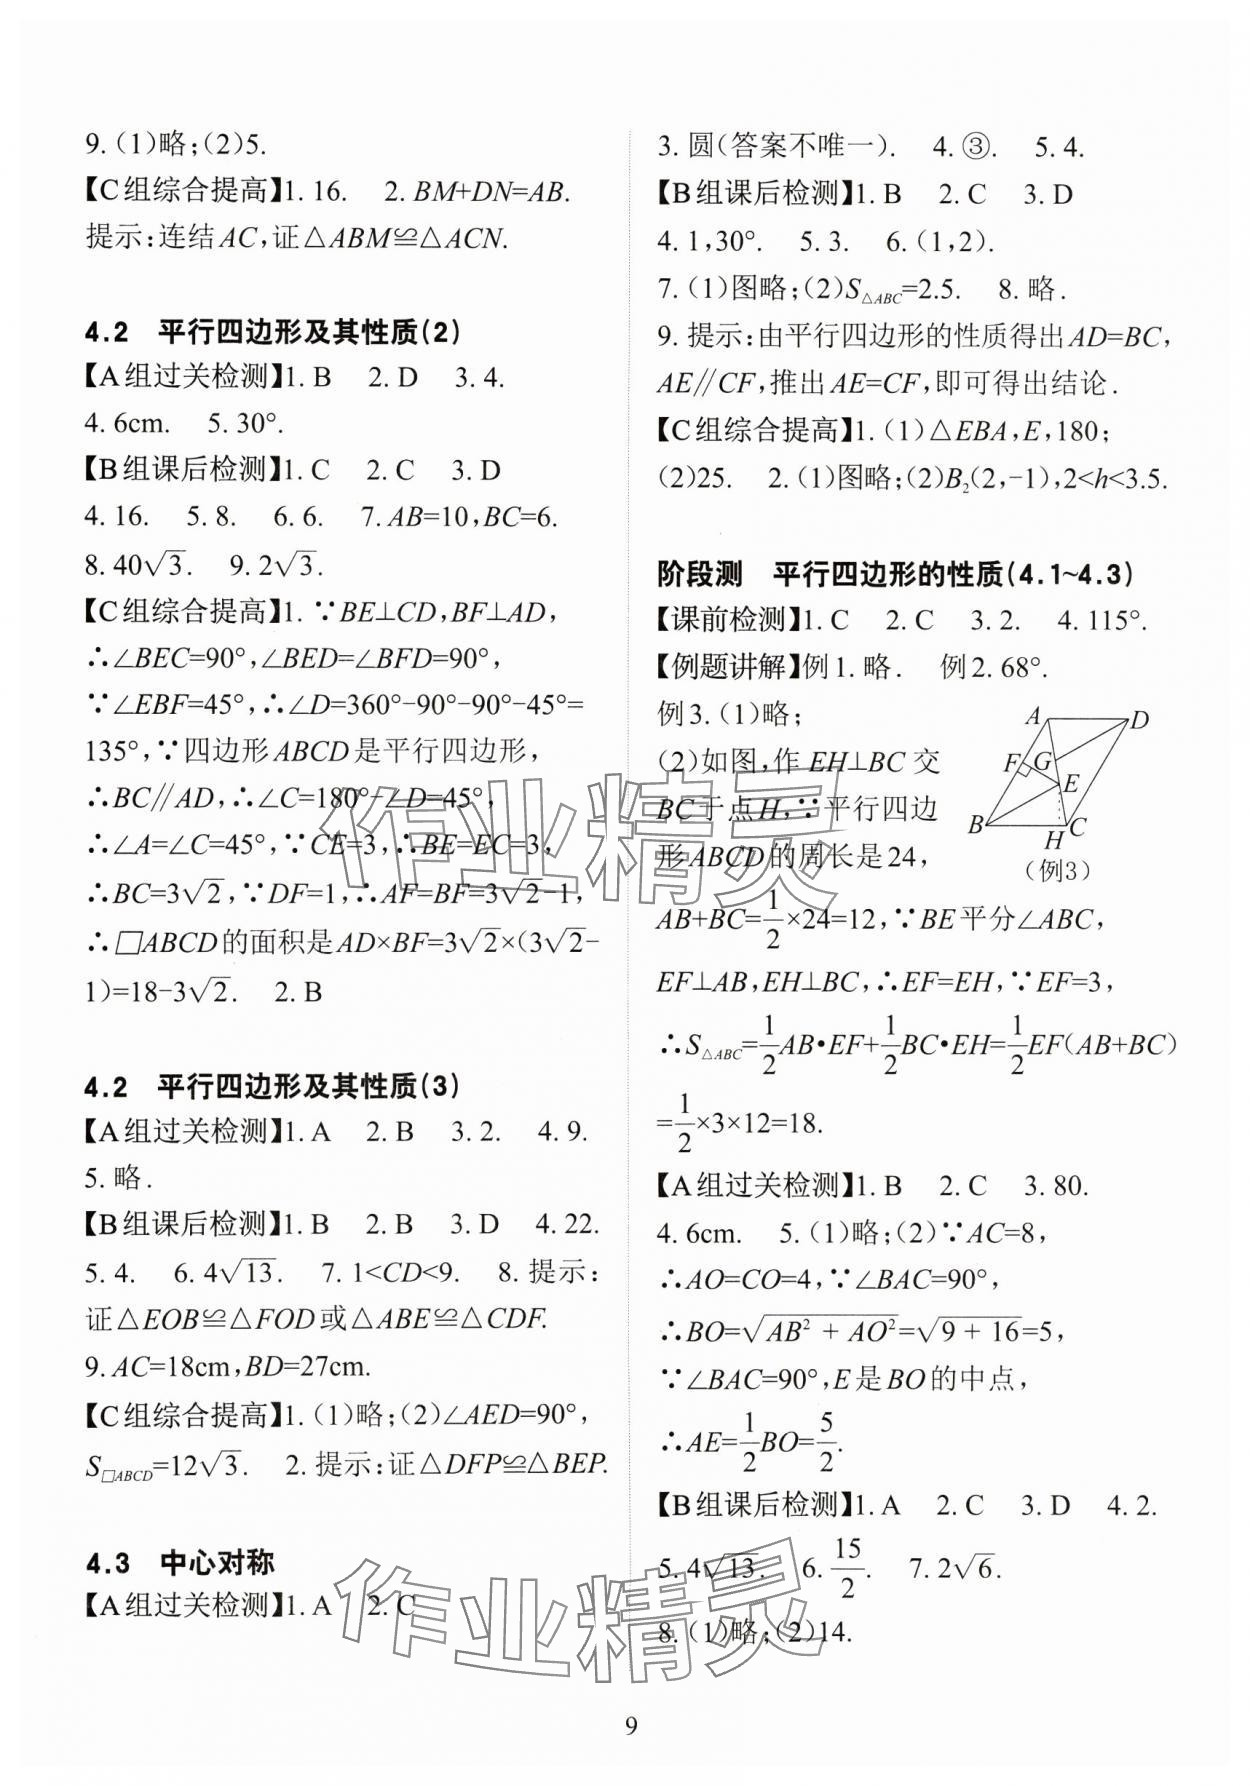 9.(1)略;(2)5.
【C组综合提高】1. 16.  2. BM+DN=AB.
提示:连结AC,证△ABM≌△ACN.
4.2 平行四边形及其性质(2)
【A组过关检测】1. B  2. D  3. 4.
4. 6cm.  5. 30°.
【B组课后检测】1. C  2. C  3. D
4. 16.  5. 8.  6. 6.  7. AB=10,BC=6.
8. 40√3.  9. 2√3.
【C组综合提高】1. ∵BE⊥CD,BF⊥AD,
∴∠BEC=90°,∠BED=∠BFD=90°,
∵∠EBF=45°,∴∠D=360°-90°-90°-45°=
135°,∵四边形ABCD是平行四边形,
∴BC∥AD,∴∠C=180°-∠D=45°,
∴∠A=∠C=45°,∵CE=3,∴BE=EC=3,
∴BC=3√2,∵DF=1,∴AF=BF=3√2-1,
∴□ABCD的面积是AD×BF=3√2×(3√2-
1)=18-3√2.  2. B
4.2 平行四边形及其性质(3)
【A组过关检测】1. A  2. B  3. 2.  4. 9.
5. 略.
【B组课后检测】1. B  2. B  3. D  4. 22.
5. 4.  6. 4√13.  7. 1<CD<9.  8. 提示:
证△EOB≌△FOD或△ABE≌△CDF.
9. AC=18cm,BD=27cm.
【C组综合提高】1.(1)略;(2)∠AED=90°,
S□ABCD=12√3.  2. 提示:证△DFP≌△BEP.
4.3 中心对称
【A组过关检测】1. A  2. C
3. 圆(答案不唯一).  4. ③.  5. 4.
【B组课后检测】1. B  2. C  3. D
4. 1,30°.  5. 3.  6.(1,2).
7.(1)图略;(2)S△ABC=2.5.  8. 略.
9. 提示:由平行四边形的性质得出AD=BC,
AE∥CF,推出AE=CF,即可得出结论.
【C组综合提高】1.(1)△EBA,E,180;
(2)25.  2.(1)图略;(2)B₂(2,-1),2<h<3.5.
阶段测 平行四边形的性质(4.1~4.3)
【课前检测】1. C  2. C  3. 2.  4. 115°.
【例题讲解】例1. 略.  例2. 68°.
例3.(1)略;
(2)如图,作EH⊥BC交
BC于点H,∵平行四边
形ABCD的周长是24,
A D
F G
E
B H C
(例3)
AB+BC=1/2×24=12,∵BE平分∠ABC,
EF⊥AB,EH⊥BC,∴EF=EH,∵EF=3,
∴S△ABC=1/2AB•EF+1/2BC•EH=1/2EF(AB+BC)
=1/2×3×12=18.
【A组过关检测】1. B  2. C  3. 80.
4. 6cm.  5.(1)略;(2)∵AC=8,
∴AO=CO=4,∵∠BAC=90°,
∴BO=√(AB²+AO²)=√(9+16)=5,
∵∠BAC=90°,E是BO的中点,
∴AE=1/2BO=5/2.
【B组课后检测】1. A  2. C  3. D  4. 2.
5. 4√13.  6. 15/2.  7. 2√6.
8.(1)略;(2)14.
作业精灵
作业精灵
9